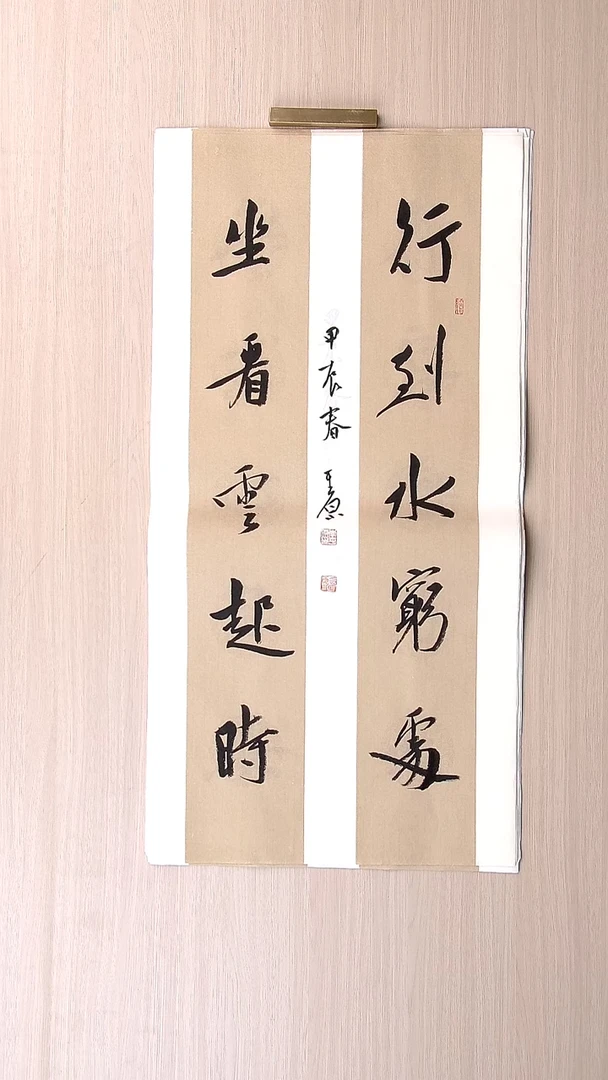 行到水窮處
坐看雲起時
甲辰春